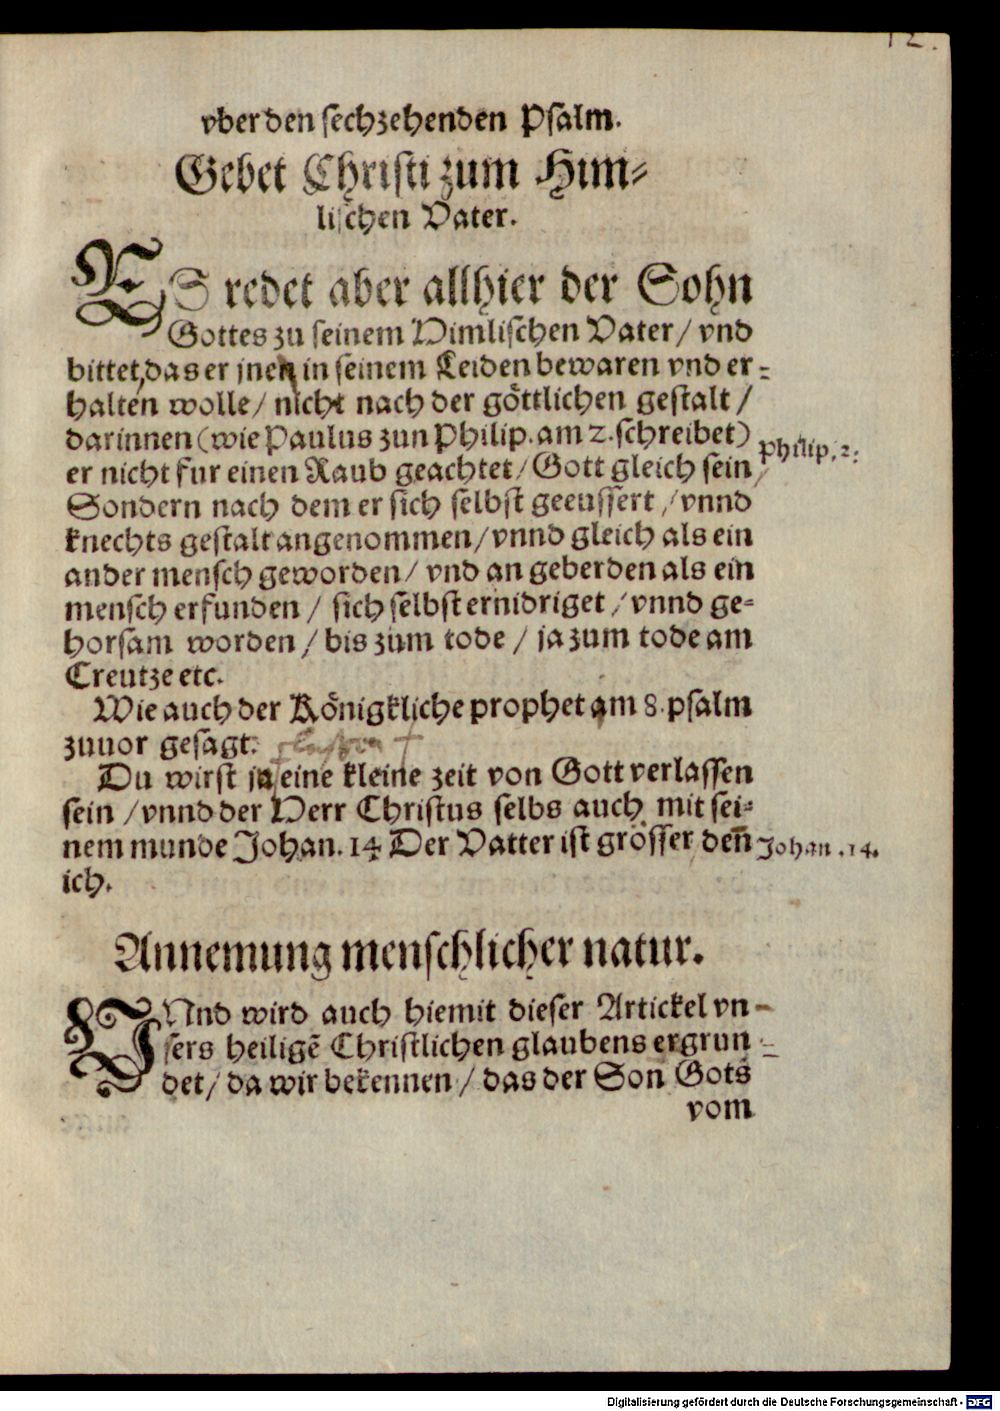 12.
vber den sechzehenden Psalm.
Gebet Christi zum Him-
lischen Vater.
ES redet aber allhier der Sohn
Gottes zu seinem Himlischen Vater / vnd
bittet, das er jnen in seinem Leiden bewaren vnd er-
halten wolle / nicht nach der göttlichen gestalt /
darinnen (wie Paulus zun Philip. am 2. schreibet)
Philip. 2.
er nicht fur einen Raub geachtet / Gott gleich sein /
Sondern nach dem er sich selbst geeussert / vnnd
knechts gestalt angenommen / vnnd gleich als ein
ander mensch geworden / vnd an geberden als ein
mensch erfunden / sich selbst ernidriget / vnnd ge-
horsam worden / bis zum tode / ja zum tode am
Creutze etc.
Wie auch der Königkliche prophet am 8. psalm
zuuor gesagt.
Du wirst jn eine kleine zeit von Gott verlassen
sein / vnnd der Herr Christus selbs auch mit sei-
nem munde Johan. 14 Der Vatter ist grösser deñ
Johan. 14.
ich.
Annemung menschlicher natur.
VNd wird auch hiemit dieser Artickel vn-
sers heiligē Christlichen glaubens ergrun-
det / da wir bekennen / das der Son Gots
vom
Digitalisierung gefördert durch die Deutsche Forschungsgemeinschaft - DFG